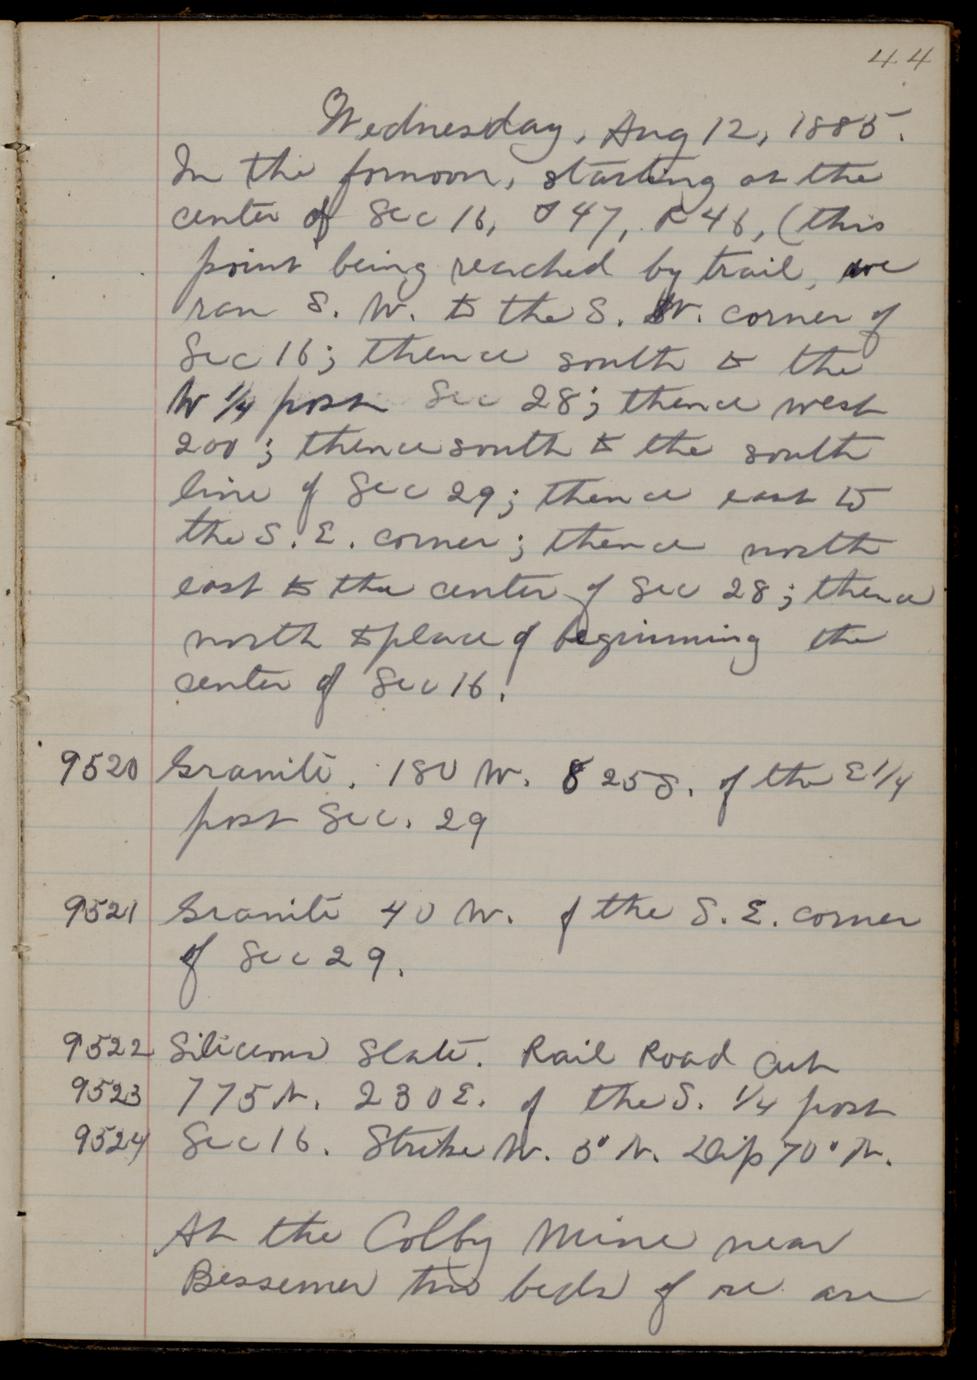 44
Wednesday, Aug 12, 1885.
In the fornoon, starting at the
center of Sec 16, T 47, R 46, (this
point being reached by trail, we
ran S. W. to the S. W. corner of
Sec 16; thence south to the
W 1/4 post Sec 28; thence west
200; thence south to the south
line of Sec 29; thence east to
the S. E. corner; thence north
east to the center of Sec 28; thence
north to place of beginning the
center of Sec 16.
9520 Granite. 180 W. 825 S. of the E 1/4
post Sec. 29
9521 Granite 40 W. of the S. E. corner
of Sec 29.
9522 Silicious Slate. Rail Road Cut
9523 775 N. 230 E. of the S. 1/4 post
9524 Sec 16. Strike W. 5° N. Dip 70° N.
At the Colby Mine near
Bessemer two beds of ore are